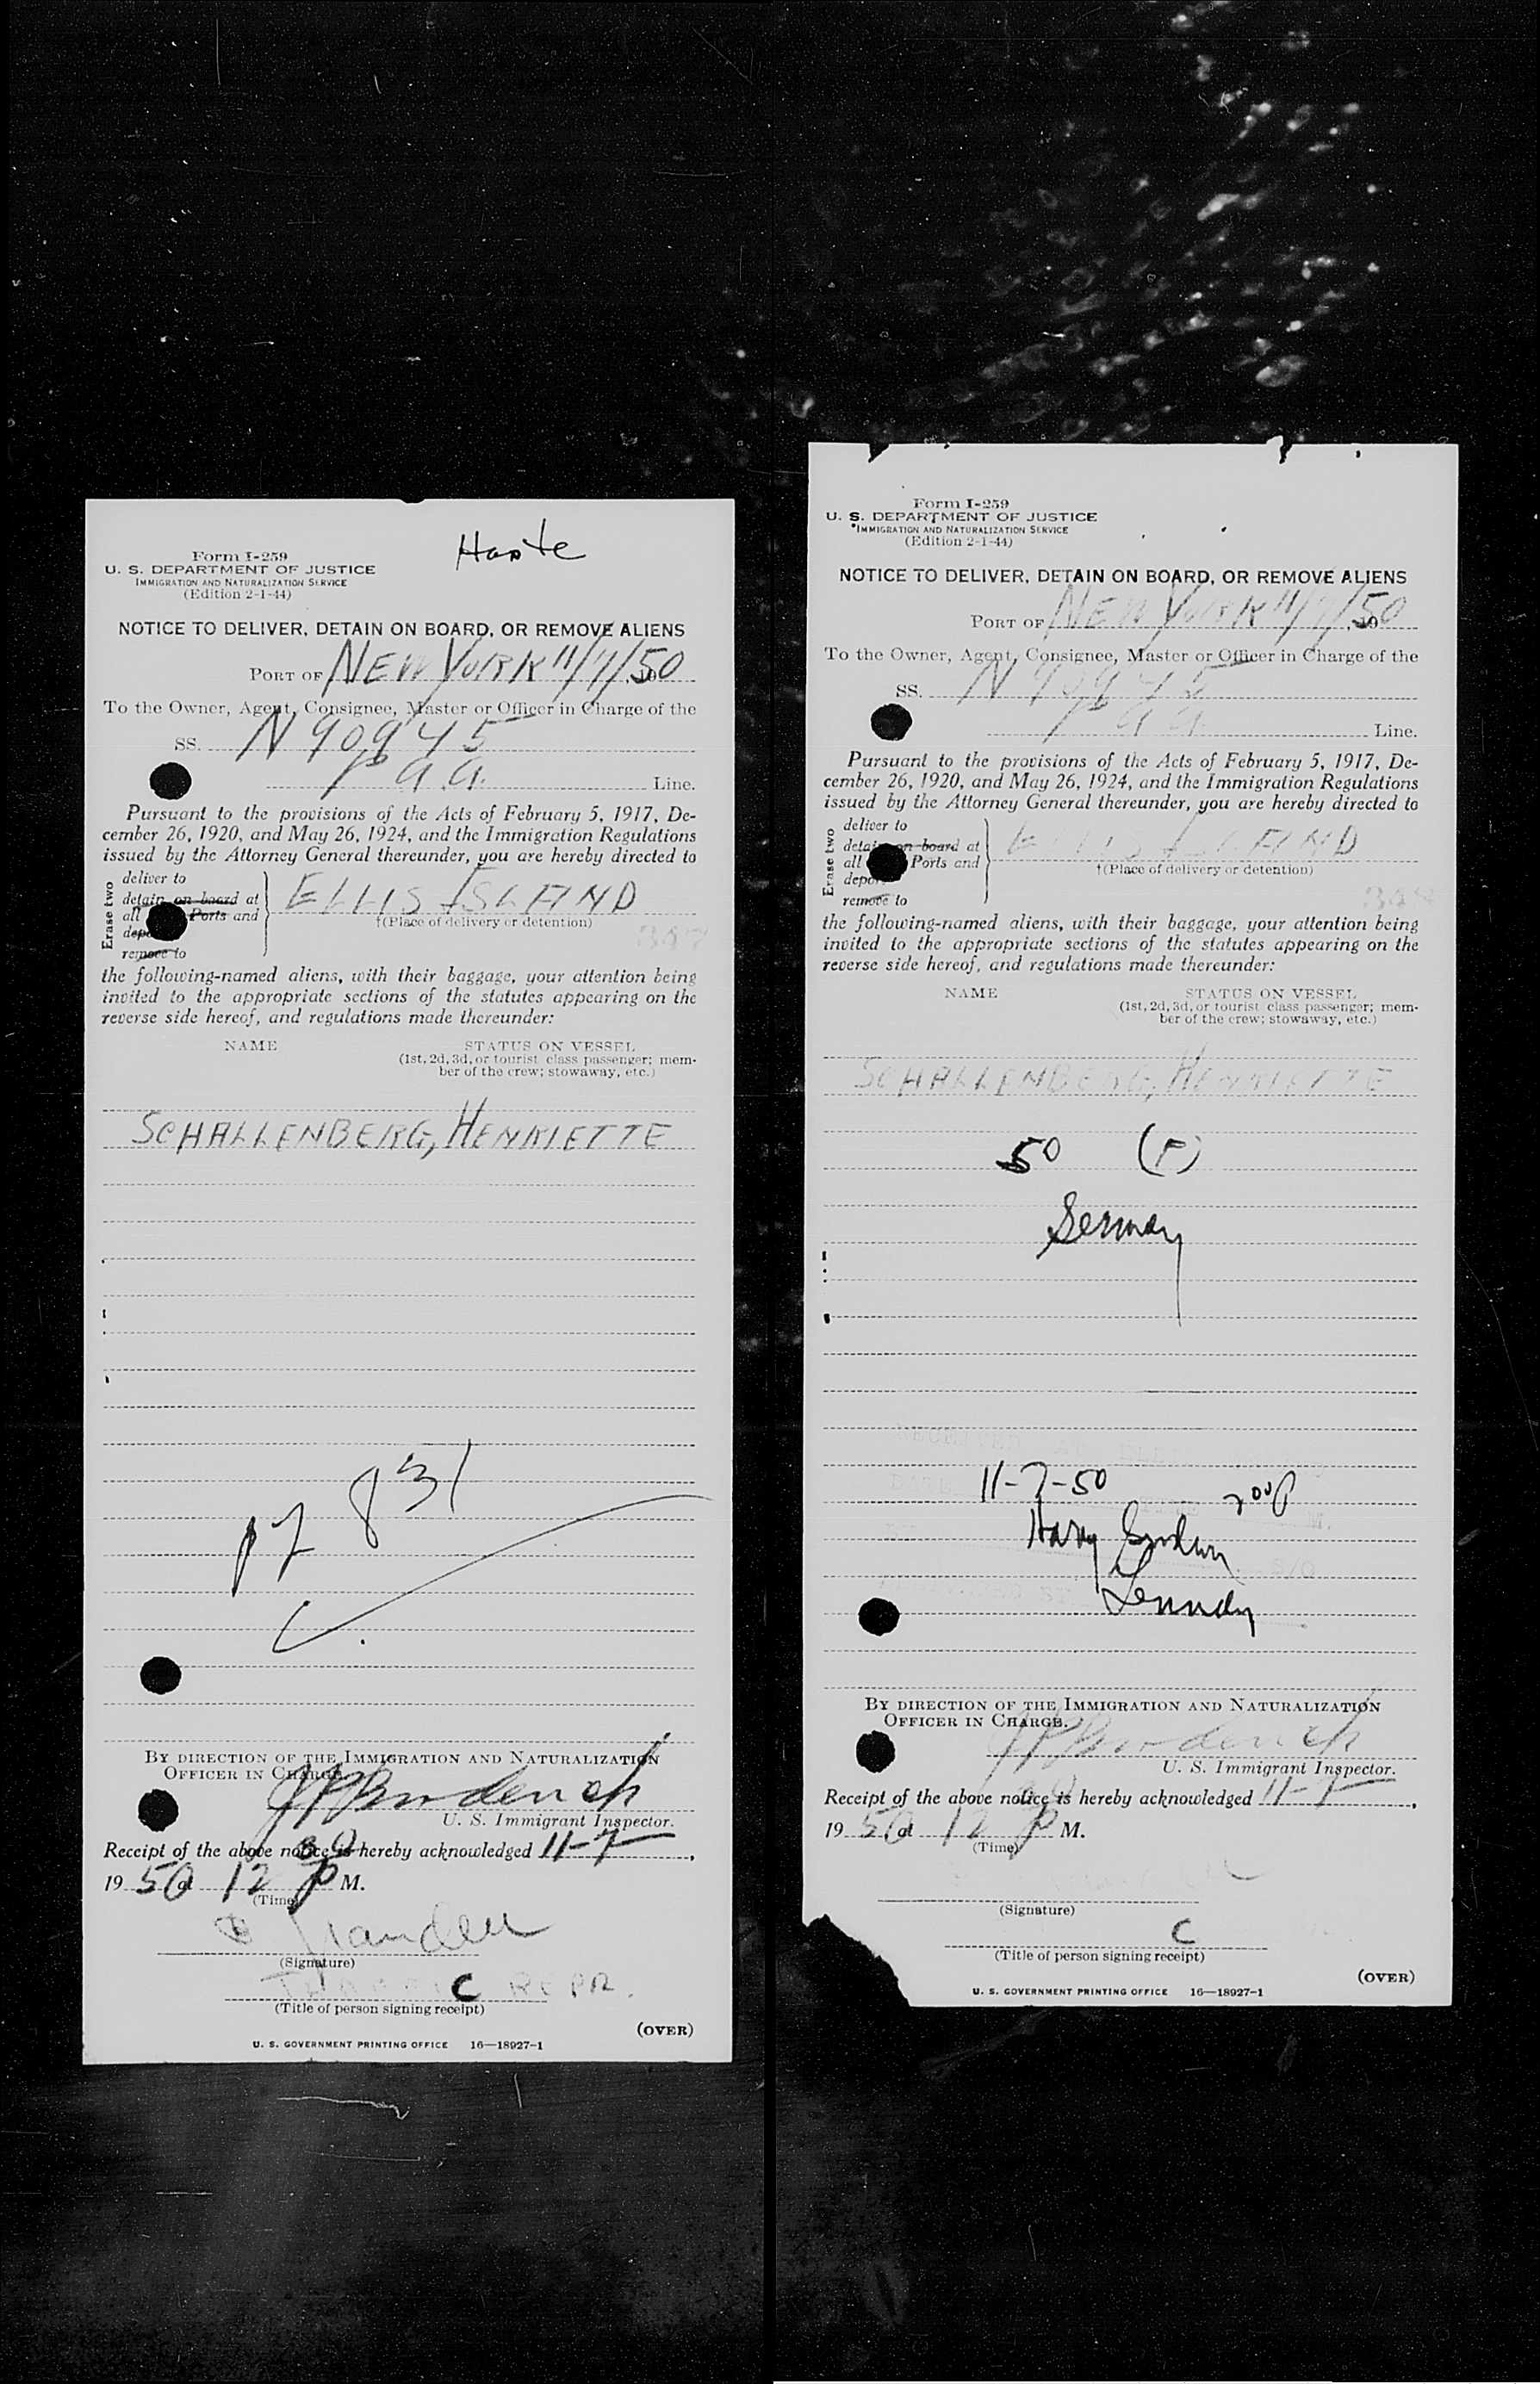 Haste
Form I-259
U. S. DEPARTMENT OF JUSTICE
IMMIGRATION AND NATURALIZATION SERVICE
(Edition 2-1-44)
NOTICE TO DELIVER, DETAIN ON BOARD, OR REMOVE ALIENS
PORT OF NEW YORK 11/7/50
To the Owner, Agent, Consignee, Master or Officer in Charge of the
SS. N90945
P a.a. Line.
Pursuant to the provisions of the Acts of February 5, 1917, De-
cember 26, 1920, and May 26, 1924, and the Immigration Regulations
issued by the Attorney General thereunder, you are hereby directed to
Erase two
deliver to
detain on board at
all Ports and
remove to
ELLIS ISLAND
†(Place of delivery or detention)
347
the following-named aliens, with their baggage, your attention being
invited to the appropriate sections of the statutes appearing on the
reverse side hereof, and regulations made thereunder:
NAME STATUS ON VESSEL
(1st, 2d, 3d, or tourist class passenger; mem-
ber of the crew; stowaway, etc.)
SCHALLENBERG, HENRIETTE
831
P7
BY DIRECTION OF THE IMMIGRATION AND NATURALIZATION
OFFICER IN CHARGE.
U. S. Immigrant Inspector.
Receipt of the above notice is hereby acknowledged 11-7,
19 50 at 12 30 P M.
(Time)
(Signature)
TRAFFIC REPR.
C
(Title of person signing receipt)
(OVER)
U. S. GOVERNMENT PRINTING OFFICE 16—18927-1
Form I-259
U. S. DEPARTMENT OF JUSTICE
IMMIGRATION AND NATURALIZATION SERVICE
(Edition 2-1-44)
NOTICE TO DELIVER, DETAIN ON BOARD, OR REMOVE ALIENS
PORT OF NEW YORK 11/7/50
To the Owner, Agent, Consignee, Master or Officer in Charge of the
SS. N90945
P a a Line.
Pursuant to the provisions of the Acts of February 5, 1917, De-
cember 26, 1920, and May 26, 1924, and the Immigration Regulations
issued by the Attorney General thereunder, you are hereby directed to
Erase two
deliver to
detain on board at
all Ports and
remove to
ELLIS ISLAND
†(Place of delivery or detention)
348
the following-named aliens, with their baggage, your attention being
invited to the appropriate sections of the statutes appearing on the
reverse side hereof, and regulations made thereunder:
NAME STATUS ON VESSEL
(1st, 2d, 3d, or tourist class passenger; mem-
ber of the crew; stowaway, etc.)
SCHALLENBERG, HENRIETTE
50 (F)
Germany
11-7-50 200P
Harry
BY DIRECTION OF THE IMMIGRATION AND NATURALIZATION
OFFICER IN CHARGE.
U. S. Immigrant Inspector.
Receipt of the above notice is hereby acknowledged 11-7,
19 50 at 12 30 P M.
(Time)
(Signature)
C
(Title of person signing receipt)
(OVER)
U. S. GOVERNMENT PRINTING OFFICE 16—18927-1